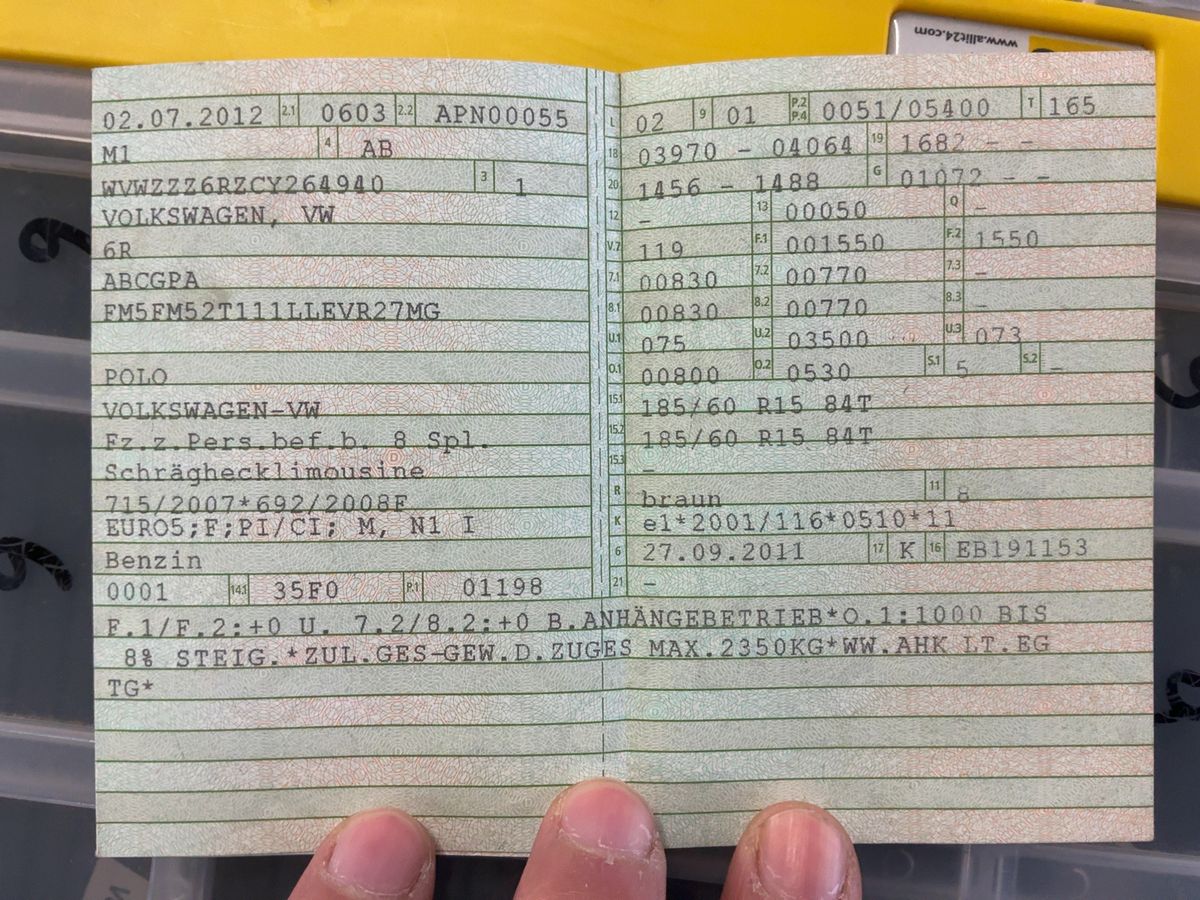 www.allit24.com
02.07.2012 2.1 0603 2.2 APN00055
M1 4 AB
WVWZZZ6RZCY264940 3 1
VOLKSWAGEN, VW
6R
ABCGPA
FM5FM52T111LLEVR27MG
POLO
VOLKSWAGEN-VW
Fz.z.Pers.bef.b. 8 Spl.
Schräghecklimousine
715/2007*692/2008F
EURO5;F;PI/CI; M, N1 I
Benzin
0001 14.1 35F0 P.1 01198
L 02 9 01 P.2 P.4 0051/05400 T 165
18 03970 - 04064 19 1682 - -
20 1456 - 1488 G 01072 - -
12 - 13 00050 Q -
V.7 119 F.1 001550 F.2 1550
7.1 00830 7.2 00770 7.3 -
8.1 00830 8.2 00770 8.3 -
U.1 075 U.2 03500 U.3 073
O.1 00800 O.2 0530 S.1 5 S.2 -
15.1 185/60 R15 84T
15.2 185/60 R15 84T
15.3 -
R braun 11 8
K e1*2001/116*0510*11
6 27.09.2011 17 K 16 EB191153
21 -
F.1/F.2:+0 U. 7.2/8.2:+0 B.ANHÄNGEBETRIEB*O.1:1000 BIS
8% STEIG.*ZUL.GES-GEW.D.ZUGES MAX.2350KG*WW.AHK LT.EG
TG*